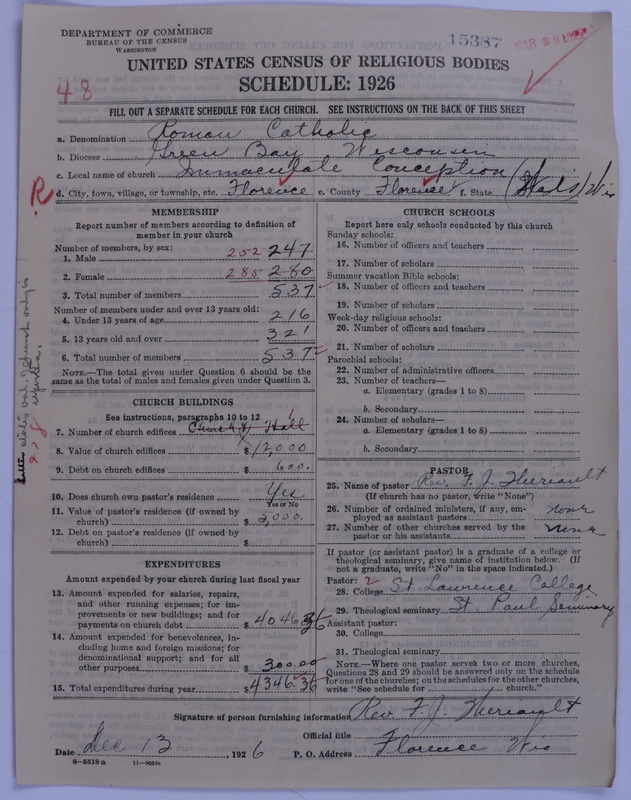 DEPARTMENT OF COMMERCE
BUREAU OF THE CENSUS
WASHINGTON
15387
UNITED STATES CENSUS OF RELIGIOUS BODIES
SCHEDULE: 1926
48
FILL OUT A SEPARATE SCHEDULE FOR EACH CHURCH. SEE INSTRUCTIONS ON THE BACK OF THIS SHEET
a. Denomination Roman Catholic
b. Diocese Green Bay Wisconsin
c. Local name of church Immaculate Conception
R
d. City, town, village, or township, etc. Florence e. County Florence f. State Wis
MEMBERSHIP
Report number of members according to definition of
member in your church
Number of members, by sex:
1. Male 252 247
2. Female 285 280
3. Total number of members 537
Number of members under and over 13 years old:
4. Under 13 years of age 216
5. 13 years old and over 321
6. Total number of members 537
NOTE.—The total given under Question 6 should be
same as the total of males and females given under Question 3.
CHURCH BUILDINGS
See instructions, paragraphs 10 to 12
7. Number of church edifices Church & Hall 1
8. Value of church edifices $ 12,000
9. Debt on church edifices $ 600.
10. Does church own pastor's residence Yes
Yes or No
11. Value of pastor's residence (if owned by
church) $ 5,000.
12. Debt on pastor's residence (if owned by
church) $
EXPENDITURES
Amount expended by your church during last fiscal year
13. Amount expended for salaries, repairs,
and other running expenses; for im-
provements or new buildings; and for
payments on church debt $ 4046.36
14. Amount expended for benevolences, in-
cluding home and foreign missions; for
denominational support; and for all
other purposes $ 300.00
15. Total expenditures during year $ 4346.36
CHURCH SCHOOLS
Report here only schools conducted by this church
Sunday schools:
16. Number of officers and teachers
17. Number of scholars
Summer vacation Bible schools:
18. Number of officers and teachers
19. Number of scholars
Week-day religious schools:
20. Number of officers and teachers
21. Number of scholars
Parochial schools:
22. Number of administrative officers
23. Number of teachers—
a. Elementary (grades 1 to 8)
b. Secondary
24. Number of scholars—
a. Elementary (grades 1 to 8)
b. Secondary
PASTOR
25. Name of pastor Rev. F. J. Theriault
(If church has no pastor, write "None")
26. Number of ordained ministers, if any, em-
ployed as assistant pastors None
27. Number of other churches served by the
pastor or his assistants None
If pastor (or assistant pastor) is a graduate of a college or
theological seminary, give name of institution below. (If
not a graduate, write "No" in the space indicated.)
Pastor: 2
28. College St Lawrence College
29. Theological seminary St. Paul Seminary
Assistant pastor:
30. College
31. Theological seminary
NOTE.—Where one pastor serves two or more churches,
Questions 28 and 29 should be answered only on the schedule
for one of the churches; on the schedules for the other churches,
write "See schedule for church."
Signature of person furnishing information Rev. F. J. Theriault
Official title
Date Dec 13, 1926 P. O. Address Florence Wis
8—5518a 11—9654c